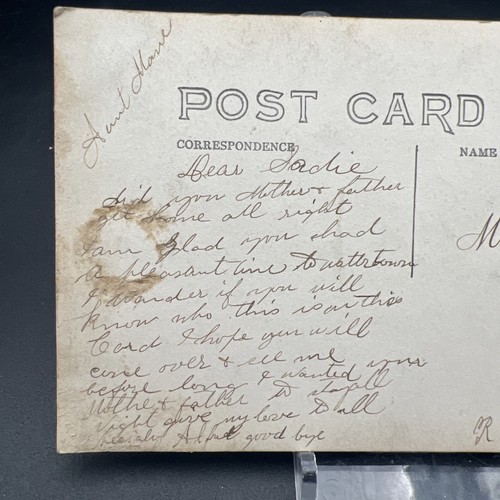 Aunt Marie
POST CARD
CORRESPONDENCE
NAME
Dear Sadie
Did you Mother & father
get home all right
I am Glad you had
a pleasant time to watertown
I wander if you will
know who this is on this
Card I hope you will
come over & see me
before long I wanted your
Mothe & father to stay all
Night give my love to all
good bye
M
R